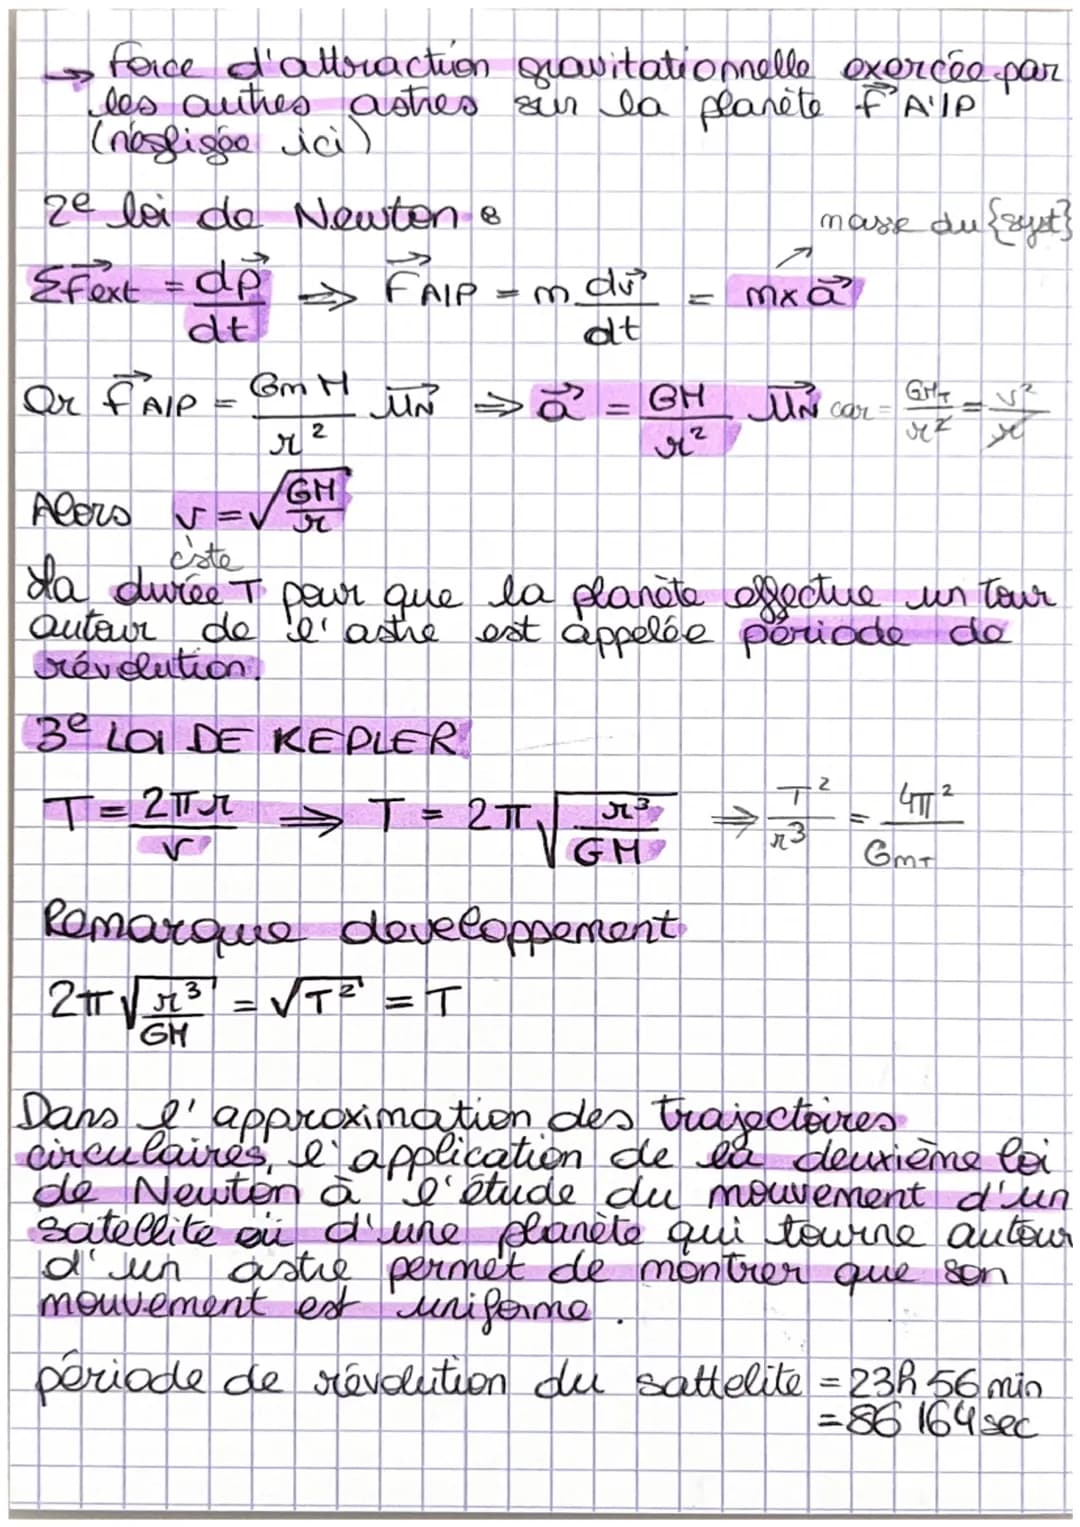 → force d'attraction gravitationnelle exercée par
les autres astres sur la planète F⃗ A'/P
(négligée ici)
2e loi de Newton :
masse du {syst}
ΣF⃗ext = dp⃗/dt ⇒ F⃗A/P = m dv⃗/dt = m×a⃗
Or F⃗A/P = GmM/r² u⃗N ⇒ a⃗ = GM/r² u⃗N car = GMT/r² = v²/r
Alors v = √(GM/r)
c'ste
La durée T pour que la planète effectue un tour
autour de l'astre est appelée période de
révolution.
3e LOI DE KEPLER
T = 2πr/v ⇒ T = 2π√(r³/GM) ⇒ T²/r³ = 4π²/GmT
Remarque developpement
2π√(r³/GM) = √T² = T
Dans l'approximation des trajectoires
circulaires, l'application de la deuxième loi
de Newton à l'étude du mouvement d'un
satellite où d'une planète qui tourne autour
d'un astre permet de montrer que son
mouvement est uniforme.
période de révolution du sattelite = 23h 56 min
= 86 164 sec